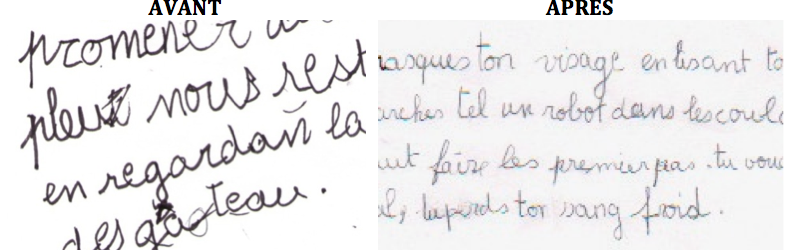 AVANT
promener
pleut nous rest
en regardant la
des gâteau.
APRÈS
rasques ton visage en lisant to
arches tel un robot dans les coulo
ut faire les premier pas. tu vou
l, tu perds ton sang froid.